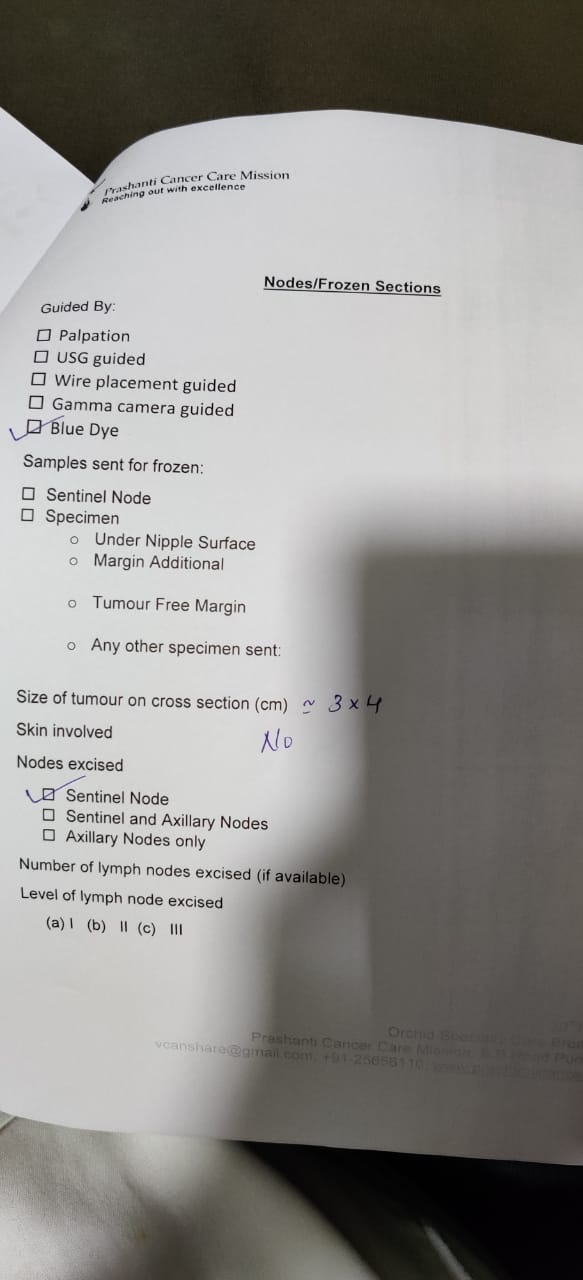 Prashanti Cancer Care Mission
Reaching out with excellence
Nodes/Frozen Sections
Guided By:
☐ Palpation
☐ USG guided
☐ Wire placement guided
☐ Gamma camera guided
☑ Blue Dye
Samples sent for frozen:
☐ Sentinel Node
☐ Specimen
○ Under Nipple Surface
○ Margin Additional
○ Tumour Free Margin
○ Any other specimen sent:
Size of tumour on cross section (cm) ≃ 3 x 4
Skin involved No
Nodes excised
☑ Sentinel Node
☐ Sentinel and Axillary Nodes
☐ Axillary Nodes only
Number of lymph nodes excised (if available)
Level of lymph node excised
(a) I (b) II (c) III
Orchid
Prashanti Cancer Care Mission,
vcanshare@gmail.com, +91-25656110,